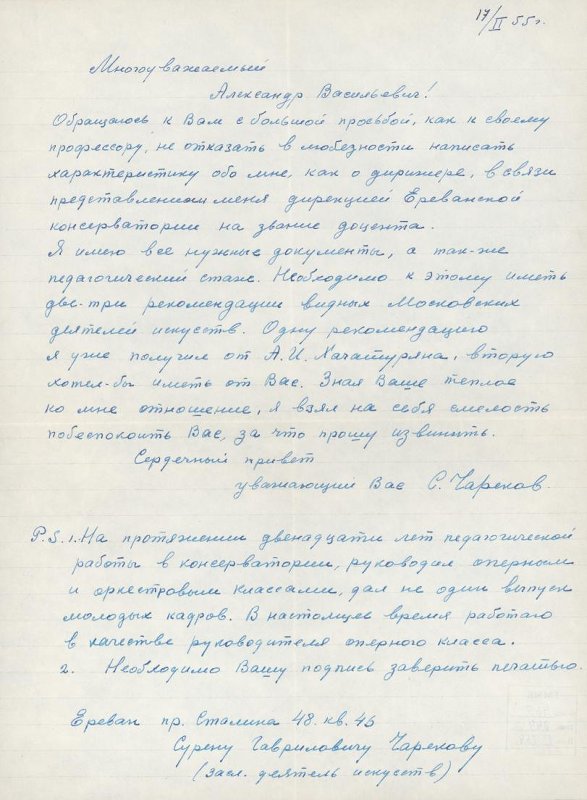 17/II 55 г.
Многоуважаемый
Александр Васильевич!
Обращаюсь к Вам с большой просьбой, как к своему
профессору, не отказать в любезности написать
характеристику обо мне, как о дирижере, в связи
представлением меня дирекцией Ереванской
консерватории на звание доцента.
Я имею все нужные документы, а так-же
педагогический стаж. Необходимо к этому иметь
две-три рекомендации видных Московских
деятелей искусств. Одну рекомендацию
я уже получил от А.И. Хачатуряна, вторую
хотел-бы иметь от Вас. Зная Ваше теплое
ко мне отношение, я взял на себя смелость
побеспокоить Вас, за что прошу извинить.
Сердечный привет
уважающий Вас С. Чареков.
P.S. 1. На протяжении двенадцати лет педагогической
работы в консерватории, руководил оперным
и оркестровым классами, дал не один выпуск
молодых кадров. В настоящее время работаю
в качестве руководителя оперного класса.
2. Необходимо Вашу подпись заверить печатью.
Ереван пр. Сталина 48. кв. 46
Сурену Гавриловичу Чарекову
(засл. деятель искусств)